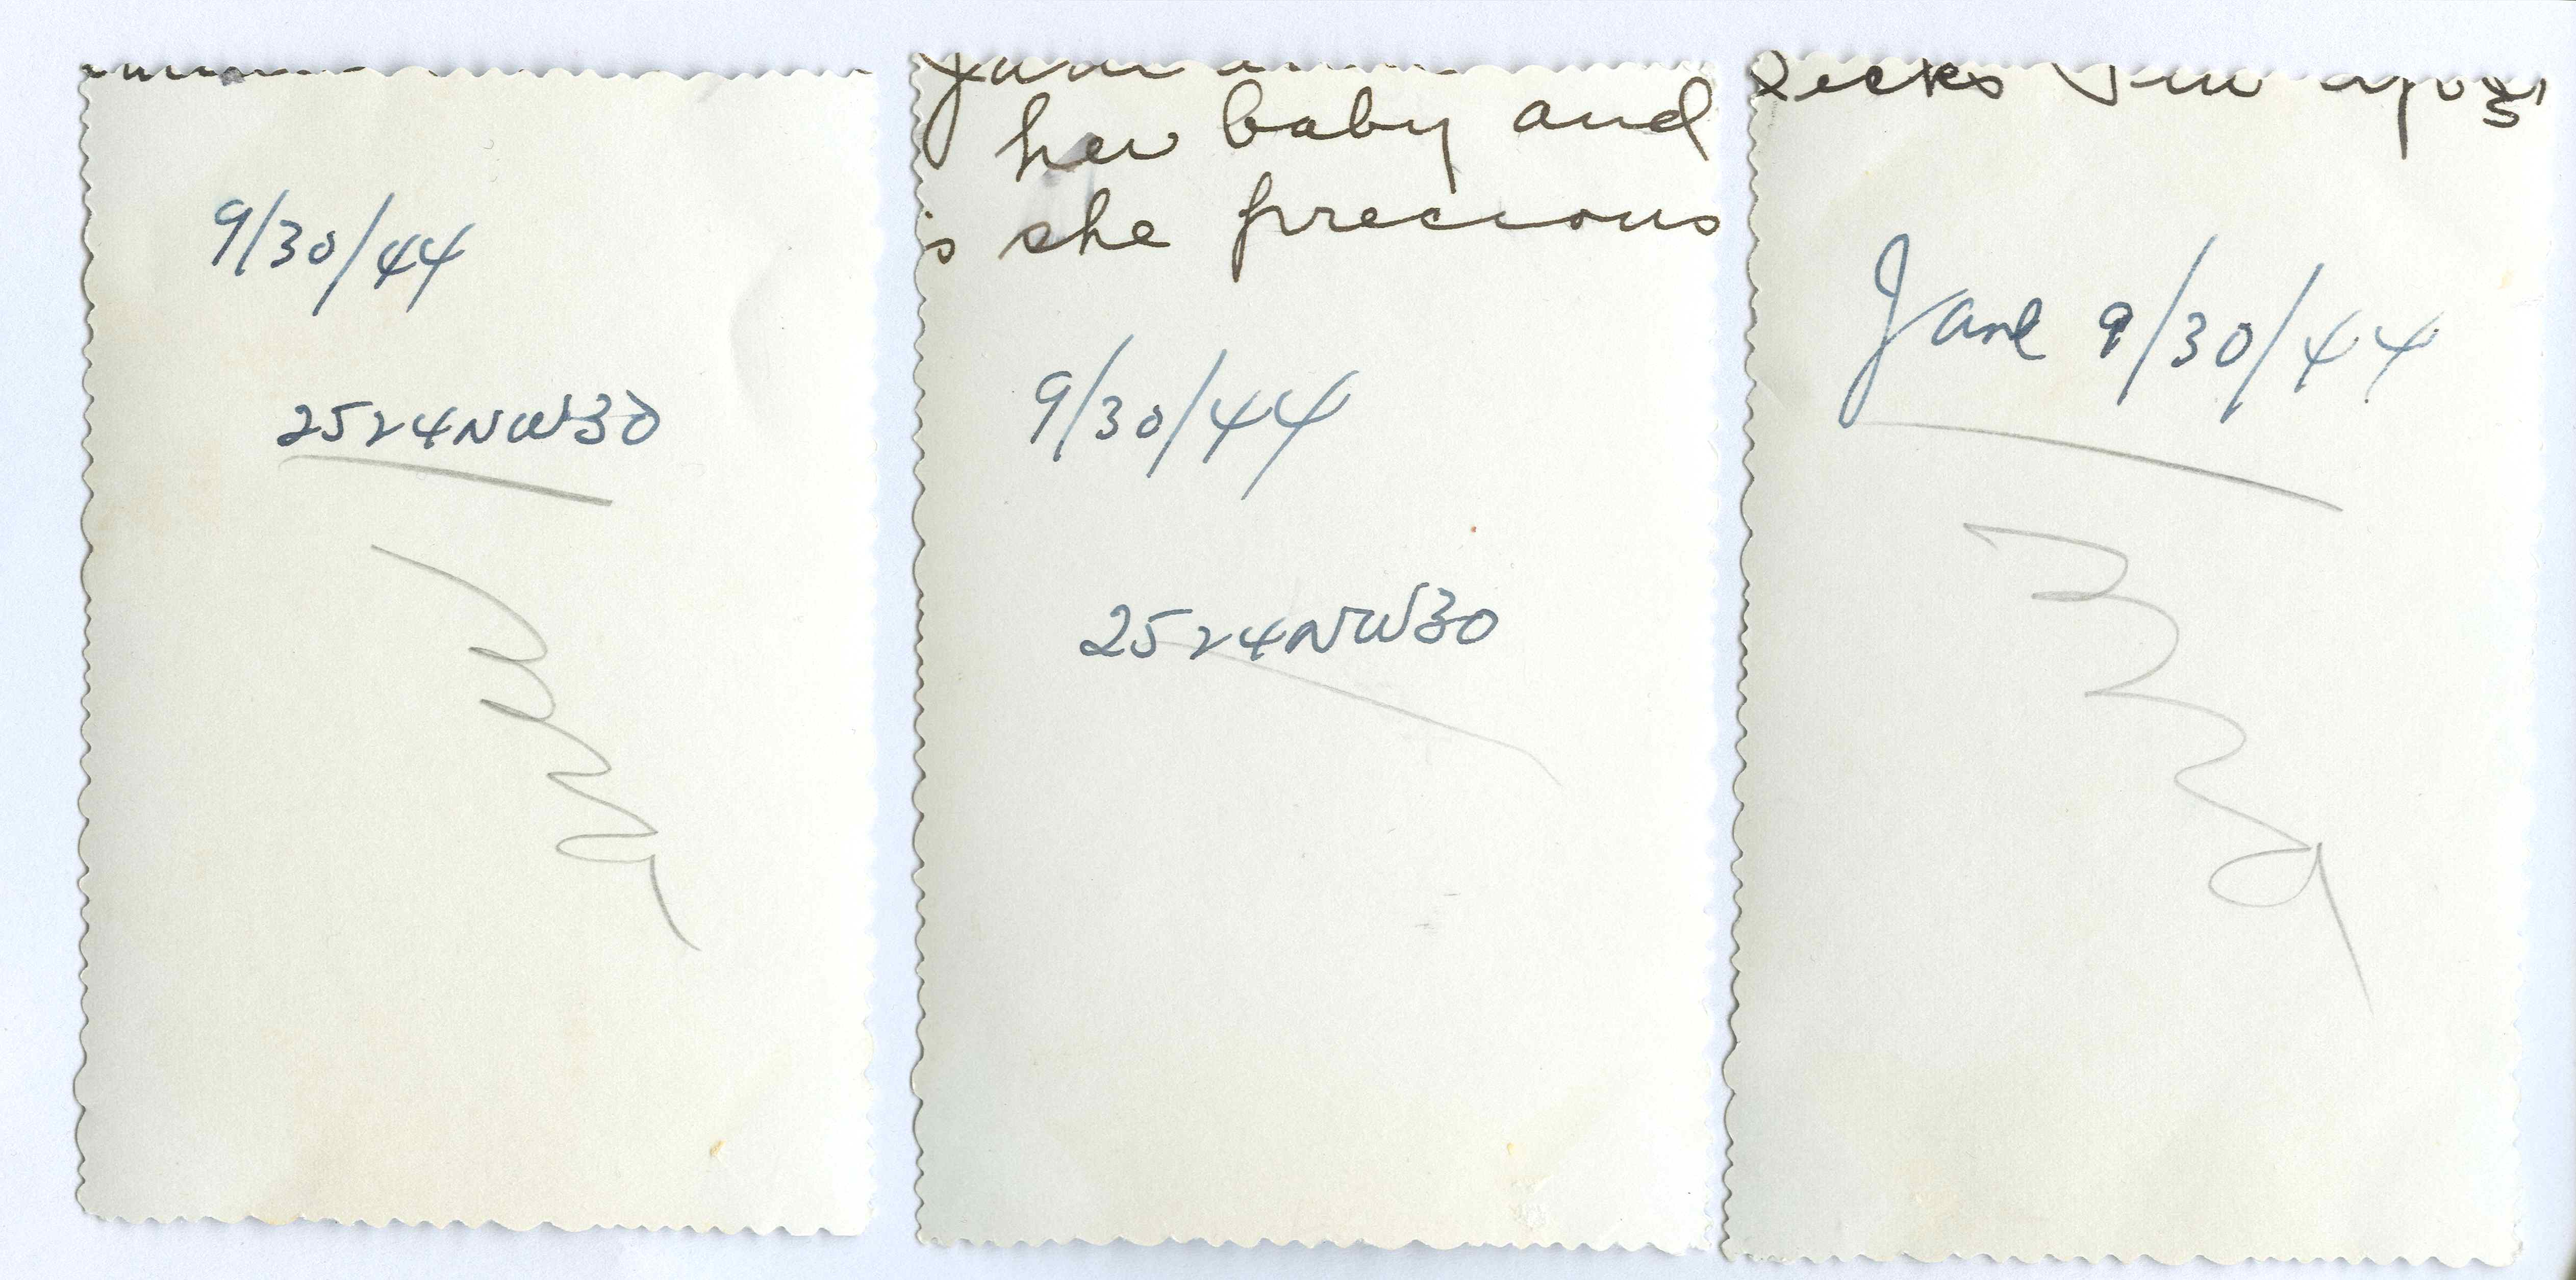 9/30/44
2524NW30
her baby and
is she precious
9/30/44
2524NW30
Jane 9/30/44